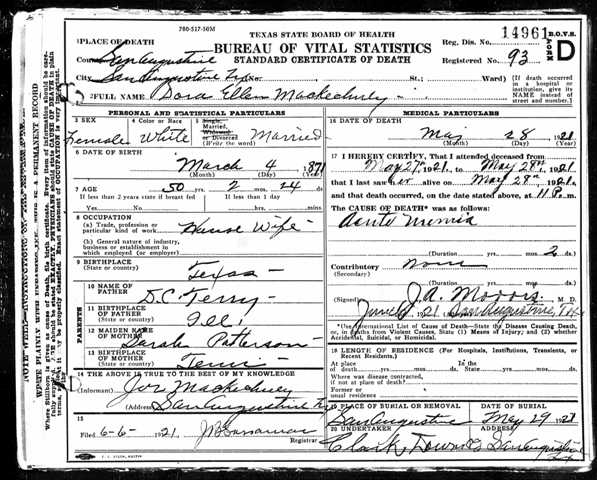 780-517-50M
TEXAS STATE BOARD OF HEALTH
BUREAU OF VITAL STATISTICS
STANDARD CERTIFICATE OF DEATH
14961 B.O.V.S.
Reg. Dis. No.
Registered No. 93
FORM D
1 PLACE OF DEATH
County San Augustine
City San Augustine Tex No. St.; Ward)
(If death occurred in a hospital or institution, give its NAME instead of street and number.)
2 FULL NAME Dora Ellen
PERSONAL AND STATISTICAL PARTICULARS
3 SEX Female
4 Color or Race White
5 Single, Married, Widowed or Divorced (Write the word) Married
6 DATE OF BIRTH
March 4 1871
(Month) (Day) (Year)
7 AGE 50 yrs. 2 mos. 24 ds.
If less than 2 years state if breast fed
If less than 1 day
Yes No hrs. min.
8 OCCUPATION
(a) Trade, profession or particular kind of work House Wife
(b) General nature of industry, business or establishment in which employed (or employer)
9 BIRTHPLACE
(State or country) Texas
PARENTS
10 NAME OF FATHER D.C. Terry
11 BIRTHPLACE OF FATHER
(State or country) Ill.
12 MAIDEN NAME OF MOTHER Sarah Patterson
13 BIRTHPLACE OF MOTHER
(State or country) Tenn
14 THE ABOVE IS TRUE TO THE BEST OF MY KNOWLEDGE
(Informant)
(Address) San Augustine Tx
15
Filed 6-6- 1921
Registrar
MEDICAL PARTICULARS
16 DATE OF DEATH
May 28 1921
(Month) (Day) (Year)
17 I HEREBY CERTIFY, That I attended deceased from
May 27th 1921, to May 28th, 1921
that I last saw her alive on May 28th 1921,
and that death occurred, on the date stated above, at 11 P.m.
The CAUSE OF DEATH* was as follows:
(Duration) yrs. mos. 2 ds.
Contributory None
(Secondary)
(Duration) yrs. mos. ds.
(Signed) J.A. Morris M. D.
1921 San Augustine, Tex
*Use International List of Causes of Death—State the Disease Causing Death, or, in deaths from Violent Causes, State (1) Means of Injury; and (2) whether Accidental, Suicidal, or Homicidal.
18 LENGTH OF RESIDENCE (For Hospitals, Institutions, Transients, or Recent Residents.)
At place of death yrs. mos. ds. State yrs. mos. ds.
Where was disease contracted, if not at place of death?
Former or usual residence
19 PLACE OF BURIAL OR REMOVAL
San Augustine
DATE OF BURIAL
May 29 1921
20 UNDERTAKER
Clark Downs
ADDRESS
San Augustine Tex